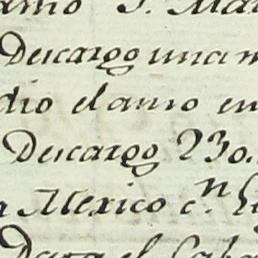 amo S. Mar
Descargo una m
dio el amo en
Descargo 230.
Mexico c.n
Para el Cab